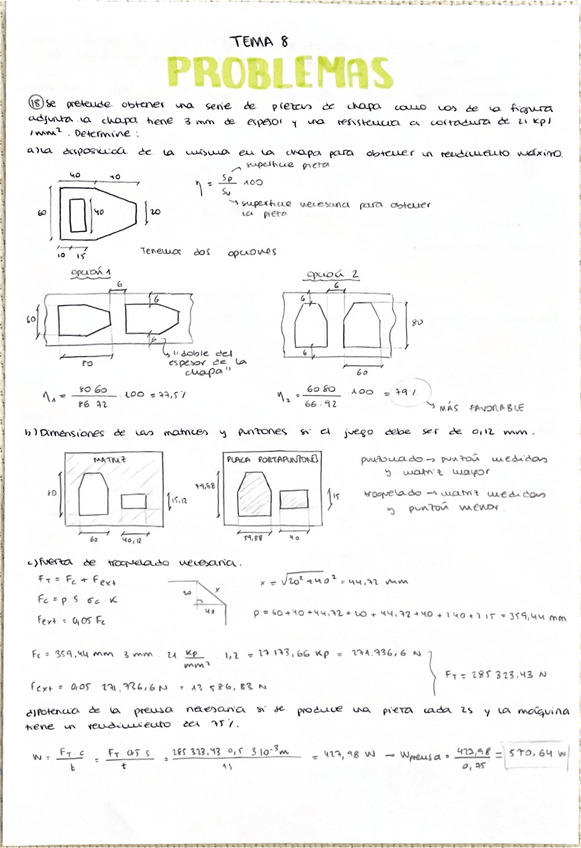 TEMA 8
PROBLEMAS
18) Se pretende obtener una serie de piezas de chapa como los de la figura
adjunta. La chapa tiene 3 mm de espesor y una resistencia a cortadura de 21 Kp/
/mm². Determine:
a) La disposición de la misma en la chapa para obtener un rendimiento máximo.
40 40
60 40 20
10 15
η = Sp/Su · 100
superficie pieza
superficie necesaria para obtener
la pieza
Tenemos dos opciones
opción 1
6
60
6
80
"doble del
espesor de la
chapa"
opción 2
6
6
80
6
60
η₁ = 80·60 / 86·72 · 100 = 77,5%
η₂ = 60·80 / 66·92 · 100 = 79%
MÁS FAVORABLE
b) Dimensiones de las matrices y punzones si el juego debe ser de 0,12 mm.
MATRIZ
15,12
60 40,12
PLACA PORTAPUNZONES
79,88
15
59,88 40
punzonado → punzón medidas
y matriz mayor
troquelado → matriz medidas
y punzón menor.
c) Fuerza de troquelado necesaria.
F_T = Fc + Fext
Fc = p · s · σc · K
Fext = 0,05 Fc
20 x
40
x = √20² + 40² = 44,72 mm
p = 60 + 40 + 44,72 + 20 + 44,72 + 40 + 2·40 + 2·15 = 359,44 mm
Fc = 359,44 mm · 3 mm · 21 Kp/mm² · 1,2 = 27173,66 Kp = 271.736,6 N
Fext = 0,05 · 271.736,6 N = 13 586,83 N
F_T = 285 323,43 N
d) Potencia de la prensa necesaria si se produce una pieza cada 2s y la máquina
tiene un rendimiento del 75%.
W = F_T · c / t = F_T · 0,5 s / t = 285 323,43 · 0,5 · 3·10⁻³ m / 1s = 427,98 W → Wprensa = 427,98 / 0,75 = 570,64 W